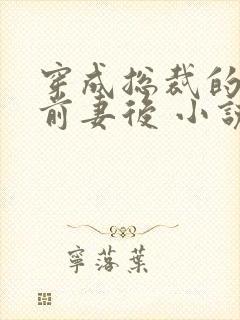 穿成总裁的
前妻後 小說
寧落葉